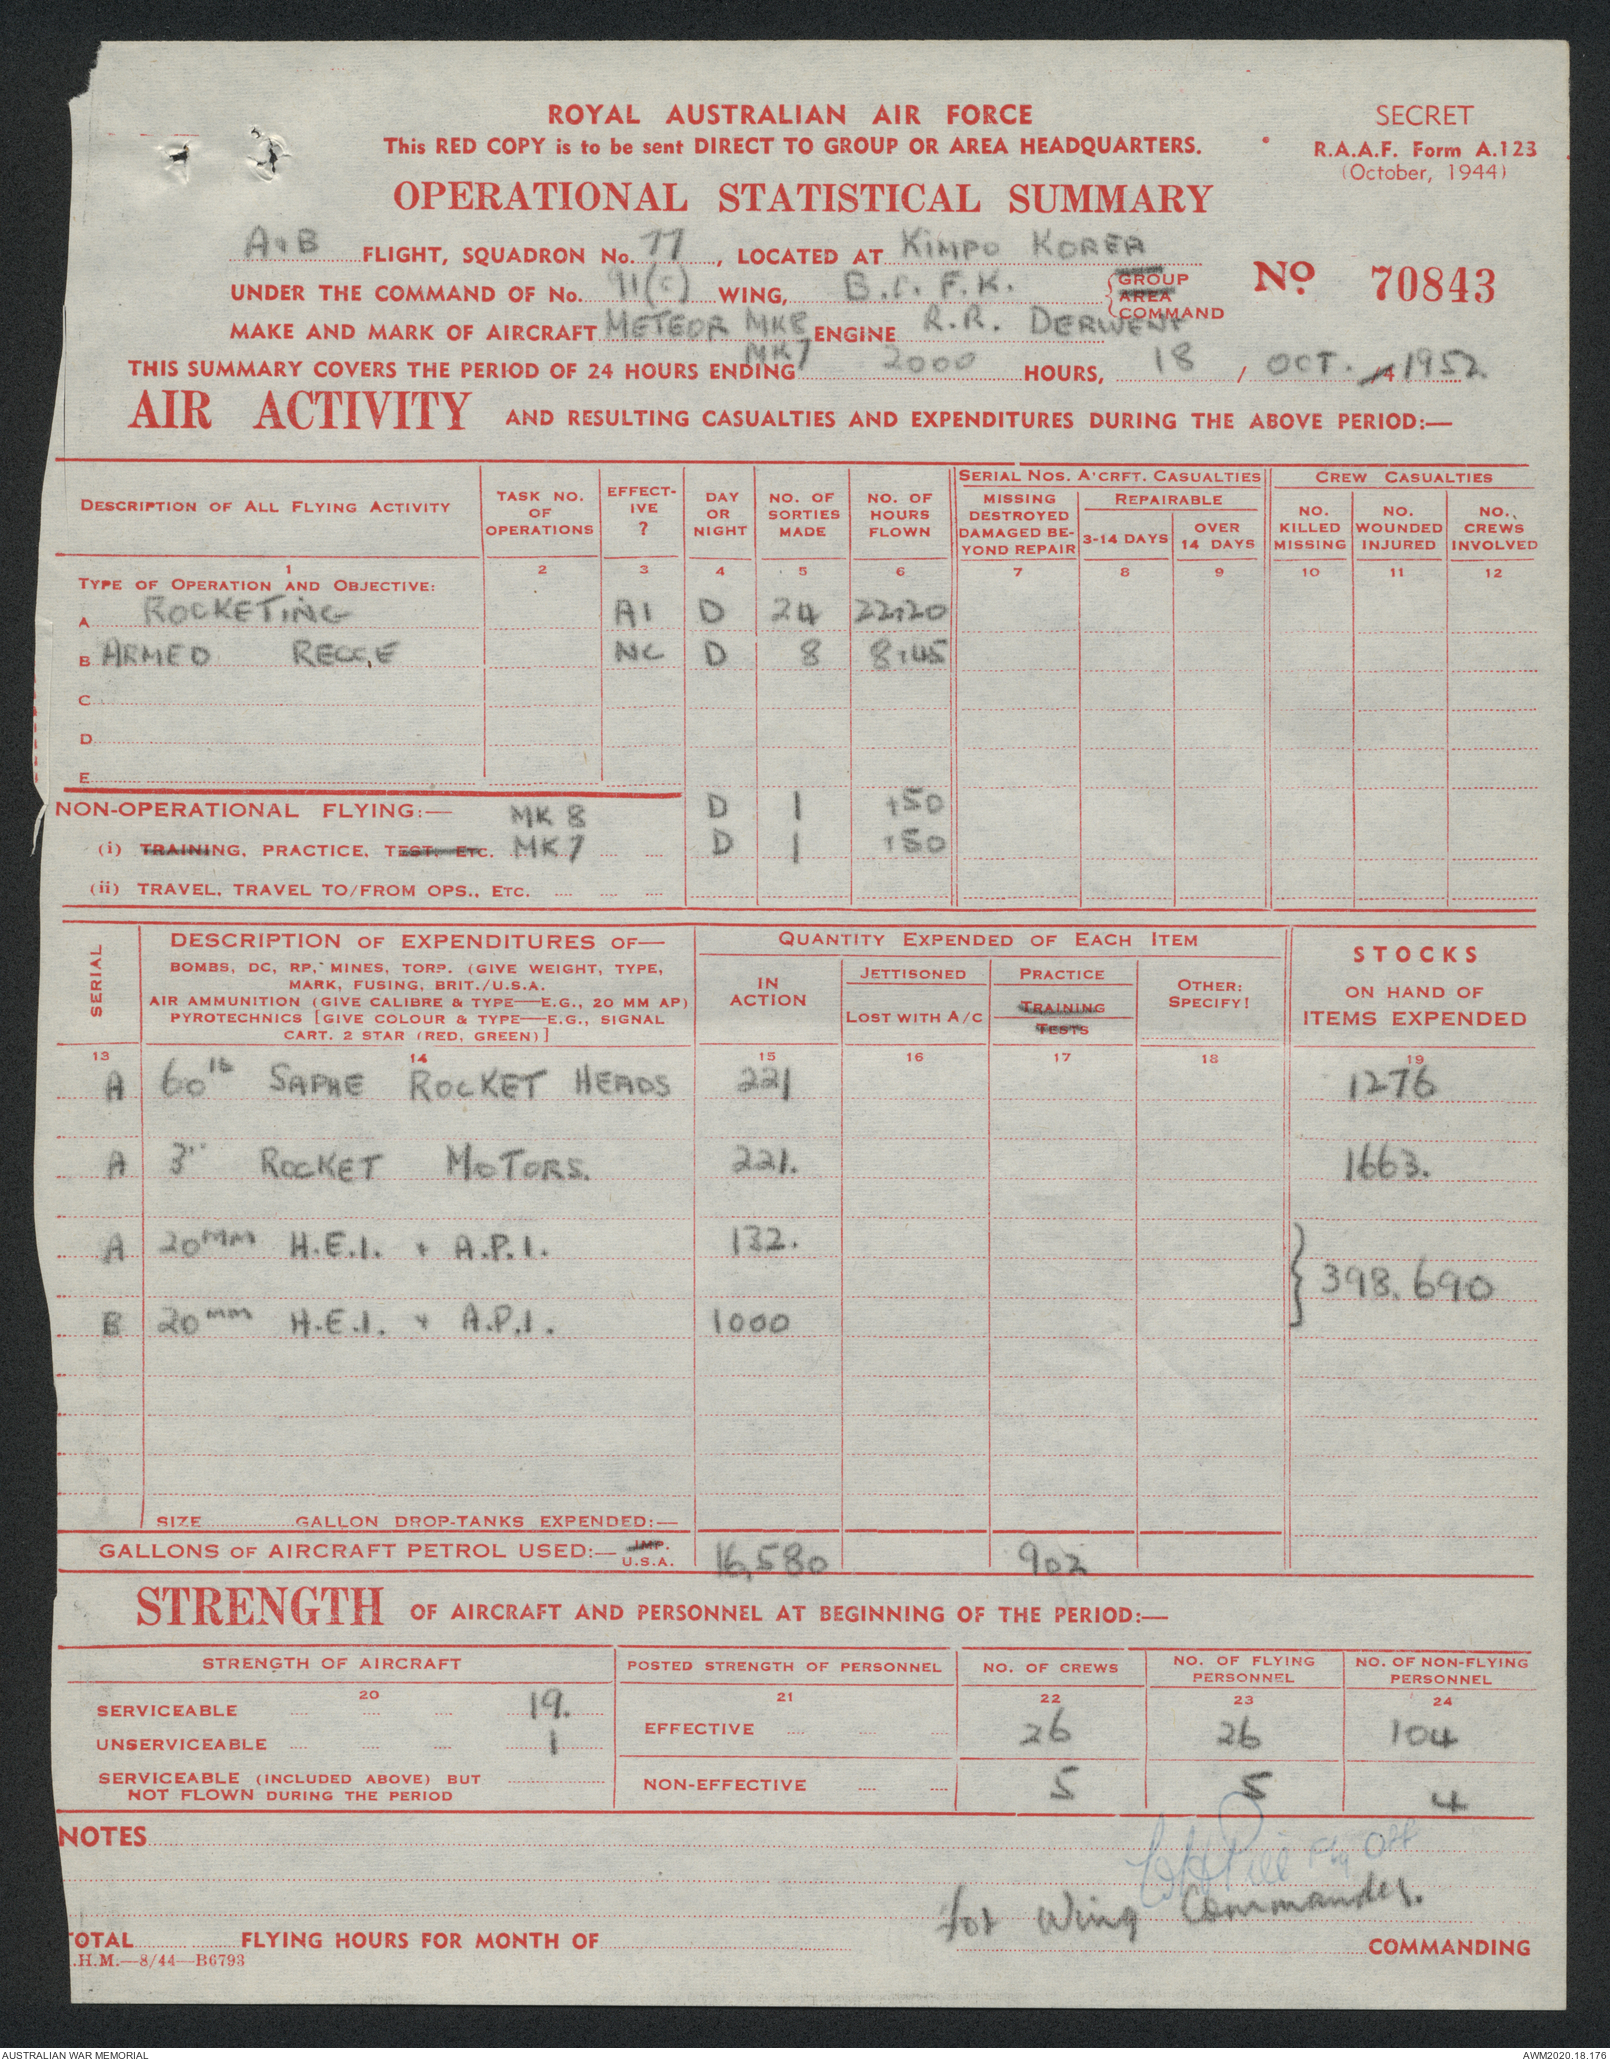 ROYAL AUSTRALIAN AIR FORCE
SECRET
This RED COPY is to be sent DIRECT TO GROUP OR AREA HEADQUARTERS.
R.A.A.F. Form A.123
(October, 1944)
OPERATIONAL STATISTICAL SUMMARY
A & B FLIGHT, SQUADRON No. 77, LOCATED AT KIMPO KOREA
UNDER THE COMMAND OF No. 91(C) WING, B.C.F.K. GROUP AREA COMMAND
No 70843
MAKE AND MARK OF AIRCRAFT METEOR MK8 MK7 ENGINE R.R. DERWENT
THIS SUMMARY COVERS THE PERIOD OF 24 HOURS ENDING 2000 HOURS, 18 / OCT. /4 1952
AIR ACTIVITY AND RESULTING CASUALTIES AND EXPENDITURES DURING THE ABOVE PERIOD:—
DESCRIPTION OF ALL FLYING ACTIVITY
TASK NO. OF OPERATIONS
EFFECT-IVE ?
DAY OR NIGHT
NO. OF SORTIES MADE
NO. OF HOURS FLOWN
SERIAL NOS. A'CRFT. CASUALTIES
MISSING DESTROYED DAMAGED BE-YOND REPAIR
REPAIRABLE
3-14 DAYS
OVER 14 DAYS
CREW CASUALTIES
NO. KILLED MISSING
NO. WOUNDED INJURED
NO. CREWS INVOLVED
1 2 3 4 5 6 7 8 9 10 11 12
TYPE OF OPERATION AND OBJECTIVE:
A ROCKETING A1 D 24 22:20
B ARMED RECCE NC D 8 8:45
C
D
E
NON-OPERATIONAL FLYING:— MK 8 D 1 :50
(i) TRAINING, PRACTICE, TEST, ETC. MK7 D 1 :50
(ii) TRAVEL, TRAVEL TO/FROM OPS., ETC.
SERIAL
DESCRIPTION OF EXPENDITURES OF—
BOMBS, DC, RP, MINES, TORP. (GIVE WEIGHT, TYPE,
MARK, FUSING, BRIT./U.S.A.
AIR AMMUNITION (GIVE CALIBRE & TYPE—E.G., 20 MM AP)
PYROTECHNICS [GIVE COLOUR & TYPE—E.G., SIGNAL
CART. 2 STAR (RED, GREEN)]
QUANTITY EXPENDED OF EACH ITEM
IN ACTION
JETTISONED
LOST WITH A/C
PRACTICE
TRAINING
TESTS
OTHER: SPECIFY!
STOCKS
ON HAND OF
ITEMS EXPENDED
13 14 15 16 17 18 19
A 60 lb SAPHE ROCKET HEADS 221 1276
A 3" ROCKET MOTORS. 221. 1663.
A 20MM H.E.I. + A.P.I. 132.
} 398,690
B 20mm H.E.I. + A.P.I. 1000
SIZE GALLON DROP-TANKS EXPENDED:—
GALLONS OF AIRCRAFT PETROL USED:— IMP. U.S.A. 16,580 902
STRENGTH OF AIRCRAFT AND PERSONNEL AT BEGINNING OF THE PERIOD:—
STRENGTH OF AIRCRAFT
POSTED STRENGTH OF PERSONNEL
NO. OF CREWS
NO. OF FLYING PERSONNEL
NO. OF NON-FLYING PERSONNEL
20 21 22 23 24
SERVICEABLE 19.
EFFECTIVE 26 26 104
UNSERVICEABLE 1
SERVICEABLE (INCLUDED ABOVE) BUT
NOT FLOWN DURING THE PERIOD
NON-EFFECTIVE 5 5 4
NOTES
Flg Off
for Wing Commander.
TOTAL FLYING HOURS FOR MONTH OF COMMANDING
.H.M.—8/44—B6793
AUSTRALIAN WAR MEMORIAL
AWM2020.18.176